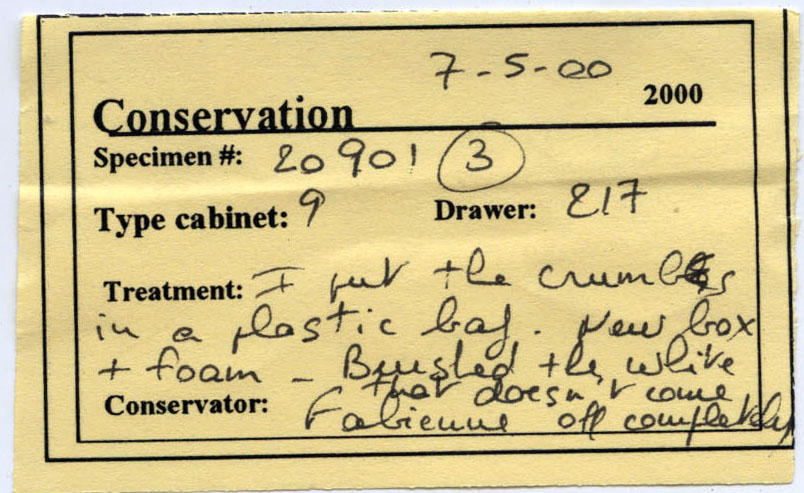 7-5-00
Conservation 2000
Specimen #: 20901 3
Type cabinet: 9 Drawer: 217
Treatment: I put the crumbs
in a plastic bag. New box
+ foam - Brushed the white
that doesn't come
Conservator: Fabienne off completely